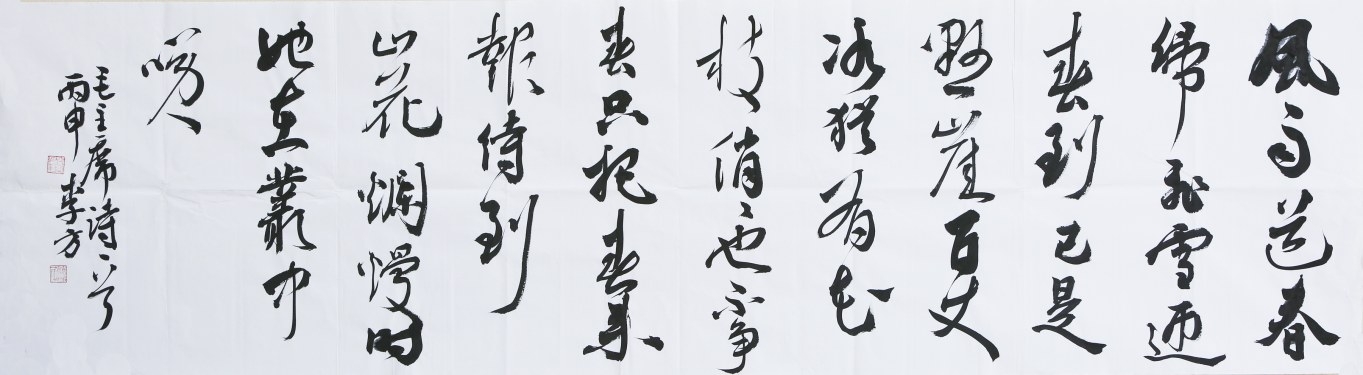 風雨送春
歸飛雪迎
春到已是
懸崖百丈
冰猶有花
枝俏〻也不争
春只把春來
報待到
山花爛熳时
她在叢中
笑
毛主席詩一首
丙申 李方